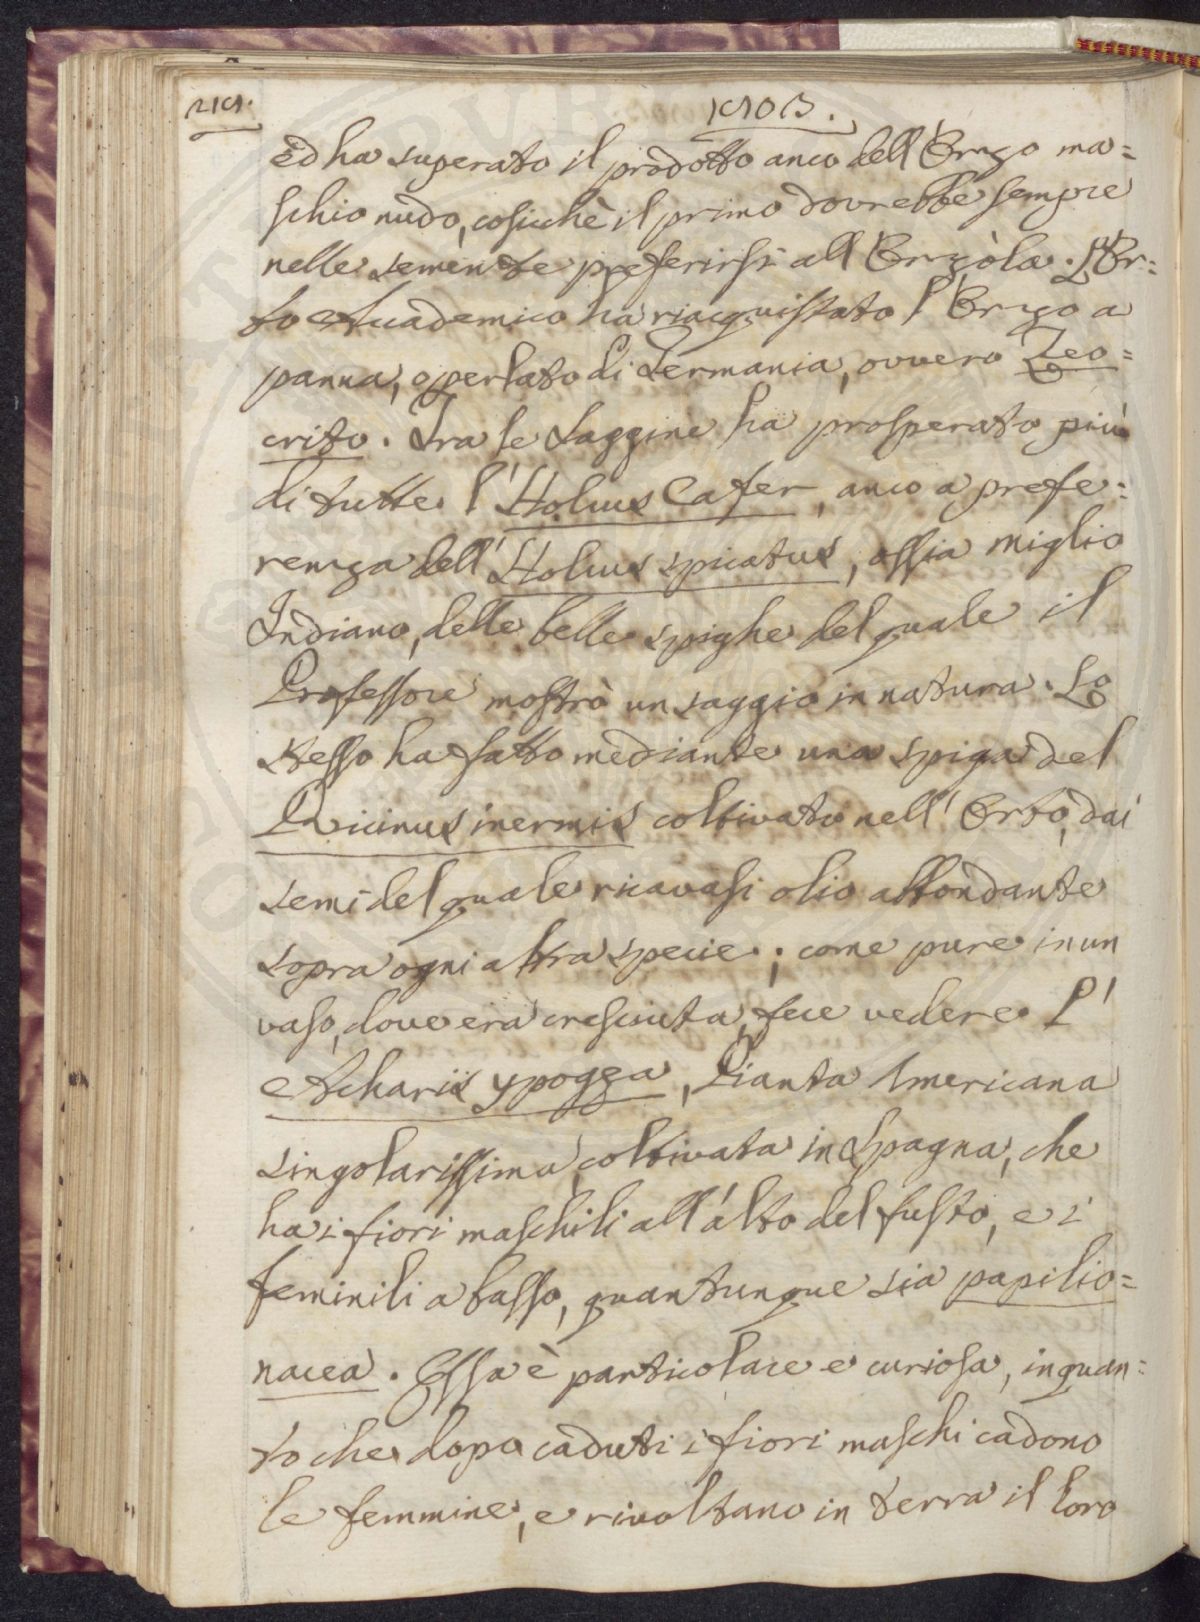 1803.
ed ha superato il prodotto anco dell'Orzo ma=
schio nudo, cosichè il primo dovrebbe sempre
nelle semente preferirsi all'Orzòla. L'Or=
to Accademico ha riacquistato l'Orzo a
panna, o perlato di Germania, ovvero Zeo=
crito. Tra le Saggine ha prosperato più
di tutte l'Holcus Cafer, anco a prefe=
renza dell'Holcus spicatus, ossia miglio
Indiano, delle belle spighe del quale il
Professore mostrò un saggio in natura. Lo
stesso ha fatto mediante una spiga del
Ricinus inermis coltivato nell'Orto, dai
semi del quale ricavasi olio abbondante
sopra ogni altra specie; come pure in un
vaso, dove era cresciuta, fece vedere l'
Acharis ypogea, Pianta Americana
singolarissima, coltivata in Spagna, che
ha i fiori maschili all'alto del fusto, e i
feminili a basso, quantunque sia papilio=
nacea. Essa è particolare e curiosa, inquan=
to che dopo caduti i fiori maschi cadono
le femmine, e rivoltano in terra il loro